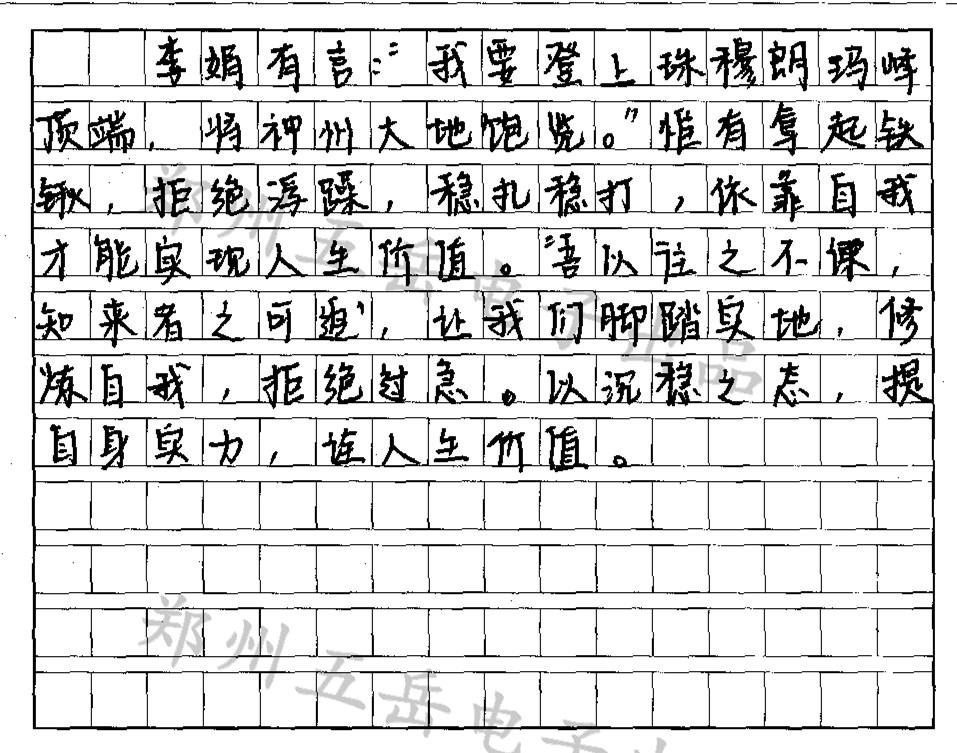 李娟有言:“我要登上珠穆朗玛峰
顶端,将神州大地饱览。”惟有拿起铁
锹,拒绝浮躁,稳扎稳打,依靠自我
才能实现人生价值。“悟以往之不谏,
知来者之可追”,让我们脚踏实地,修
炼自我,拒绝过急。以沉稳之态,提
自身实力,达人生价值。
郑州五岳电子产品
郑州五岳电子